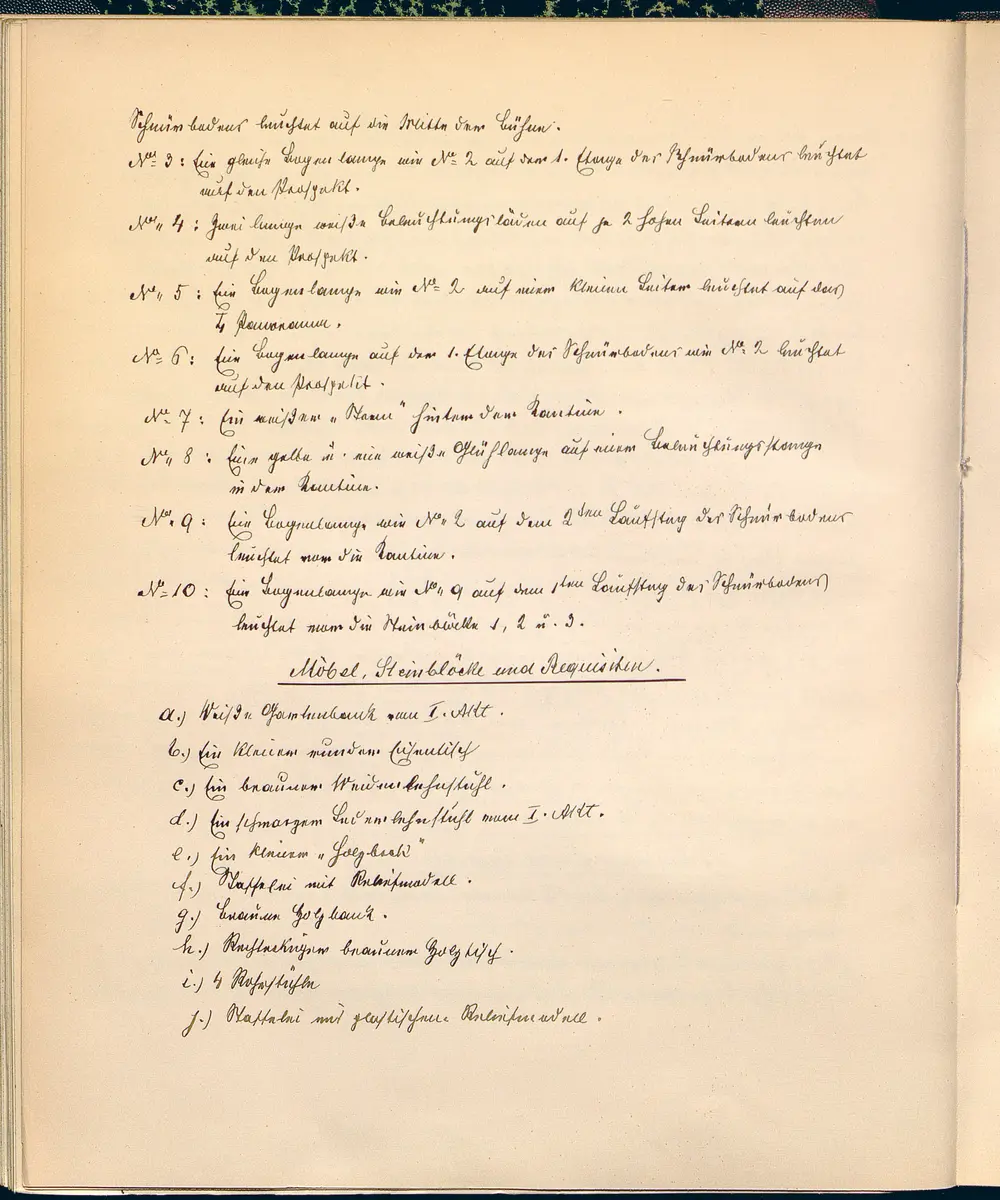 Schnürbodens leuchtet auf die Mitte der Bühne.
No 3: Eine gleiche Bogenlampe wie No 2 auf der 1. Etage des Schnürbodens leuchtet
auf den Prospekt.
No 4: Zwei lange weiße Beleuchtungsläden auf je 2 hohen Leitern leuchten
auf den Prospekt.
No 5: Eine Bogenlampe wie No 2 auf einer kleinen Leiter leuchtet auf das
Panorama.
No 6: Eine Bogenlampe auf der 1. Etage des Schnürbodens wie No 2 leuchtet
auf den Prospekt.
No 7: Ein weißer „Stern" hinter der Kantine.
No 8: Eine gelbe u. eine weiße Glühlampe auf einer Beleuchtungsstange
in der Kantine.
No 9: Eine Bogenlampe wie No 2 auf dem 2ten Laufsteg des Schnürbodens
leuchtet vor die Kantine.
No 10: Eine Bogenlampe wie No 9 auf dem 1ten Laufsteg des Schnürbodens
leuchtet vor die Steinblöcke 1, 2 u. 3.
Möbel, Steinblöcke und Requisiten.
a.) Weiße Gartenbank vom I. Akt.
b.) Ein kleiner runder Eisentisch
c.) Ein brauner Weidenlehnstuhl.
d.) Ein schwarzer Lederlehnstuhl vom I. Akt.
e.) Ein kleiner „Holzbock"
f.) Staffelei mit Reliefmodell.
g.) Braune Holzbank.
h.) Rechteckiger brauner Holztisch.
i.) 4 Rohrstühle
j.) Staffelei mit plastischen Reliefmodell.